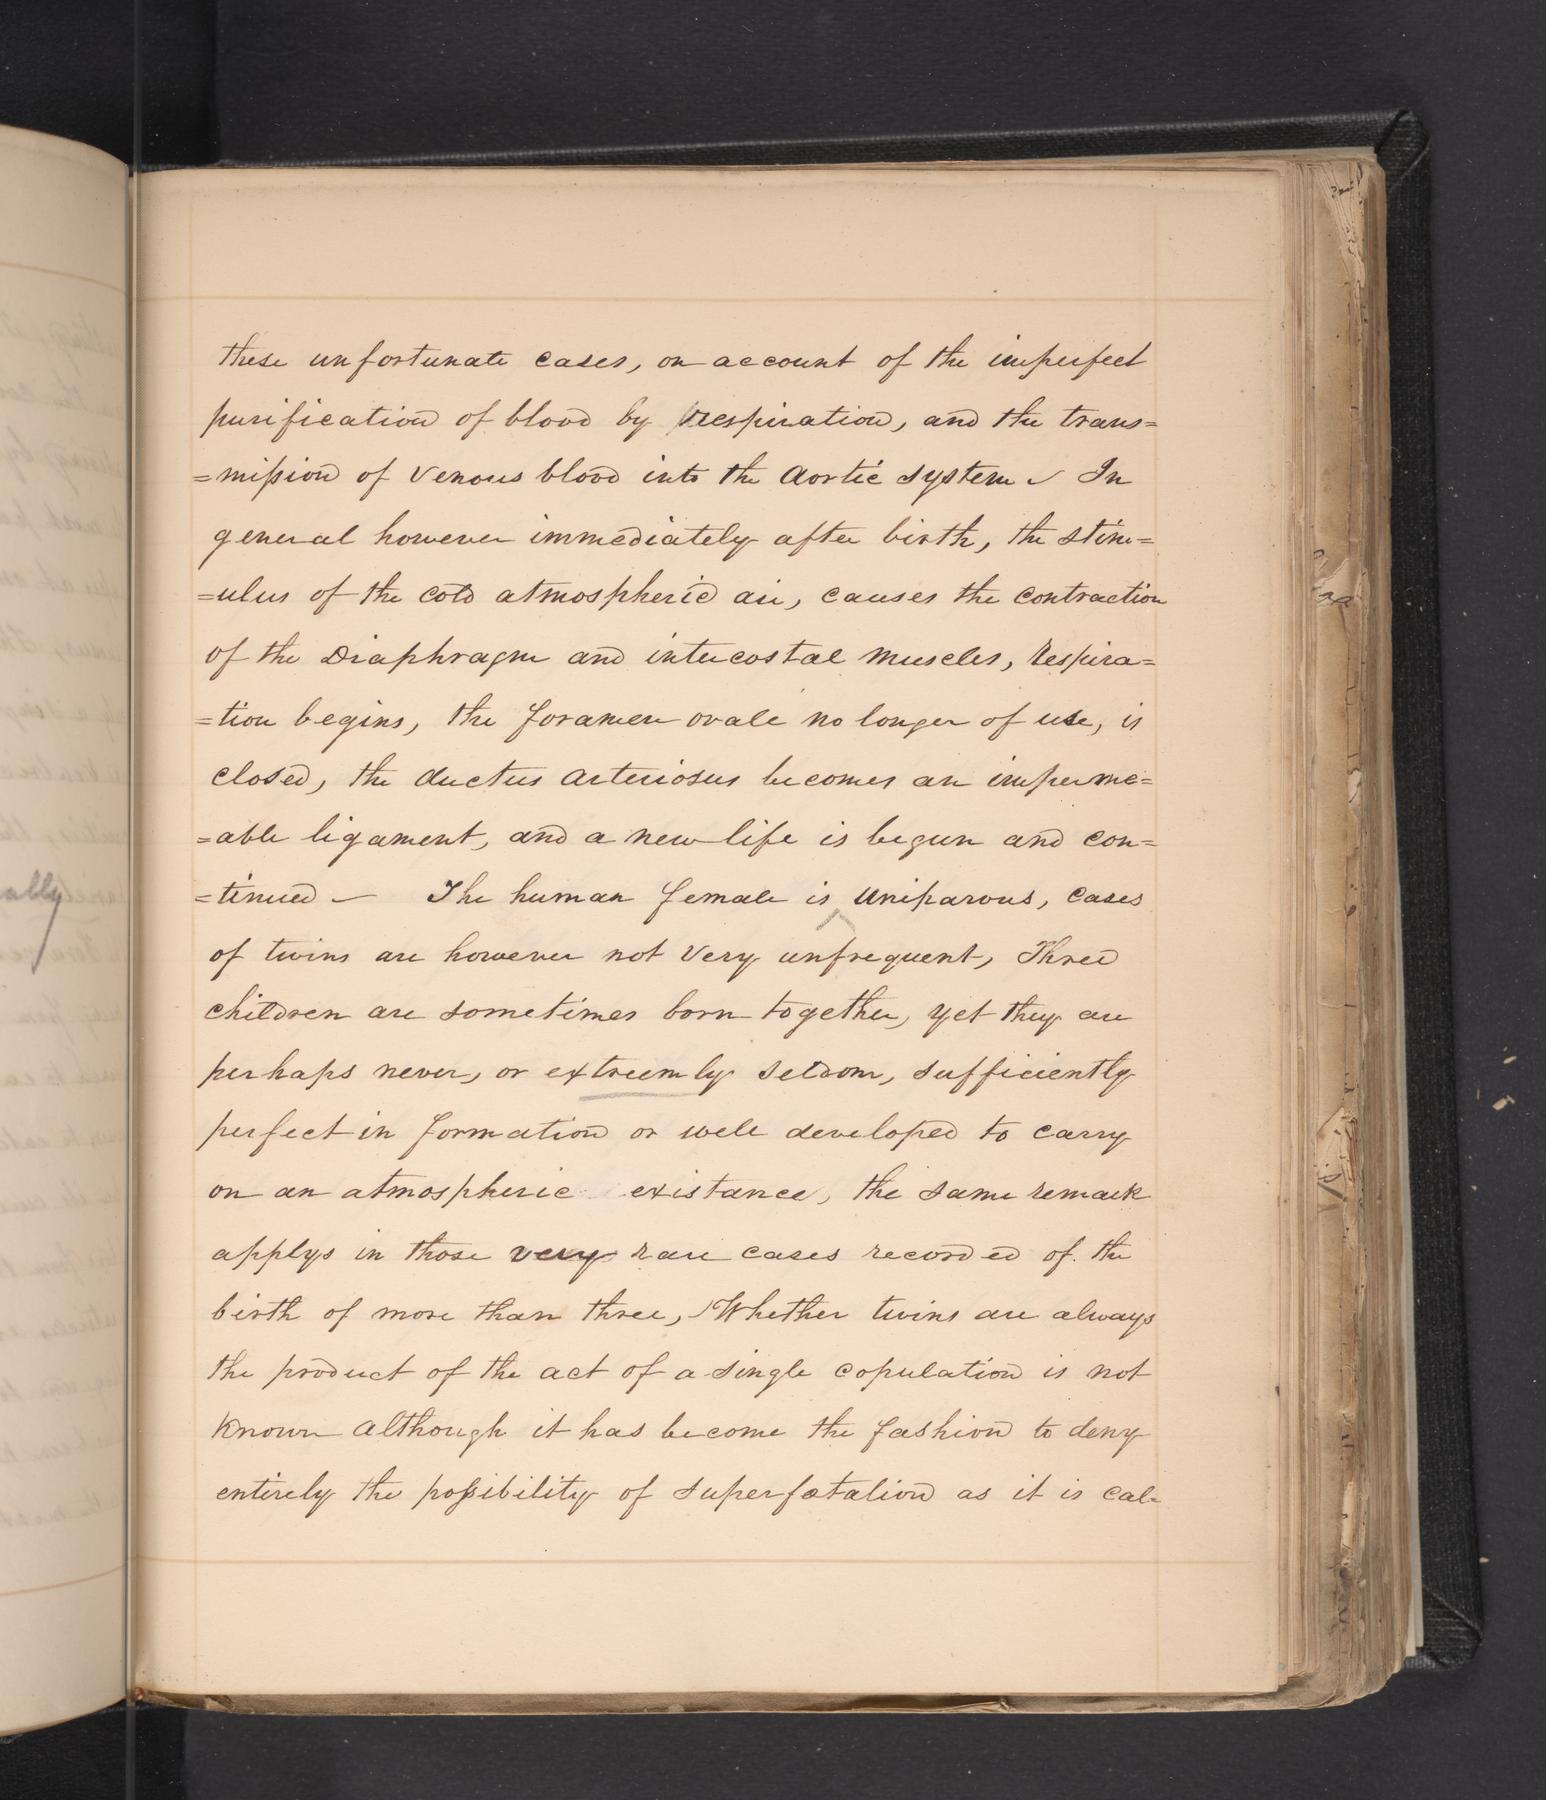 these unfortunate cases, on account of the imperfect
purification of blood by respiration, and the trans=
=mission of venous blood into the Aortic system In
general however immediately after birth, the stim=
=ulus of the cold atmospheric air, causes the contraction
of the Diaphragm and intercostal muscles, respira=
=tion begins, the foramen ovale no longer of use, is
closed, the ductus arteriosus becomes an imperme=
=able ligament, and a new life is begun and con=
=tinued — The human female is uniparous, cases
ally
of twins are however not very unfrequent, Three
children are sometimes born together, yet they are
perhaps never, or extreemly seldom, sufficiently
perfect in formation or well developed to carry
on an atmospheric existance, the same remark
applys in those very rare cases recorded of the
birth of more than three, Whether twins are always
the product of the act of a single copulation is not
known although it has become the fashion to deny
entirely the possibility of superfœtation as it is cal=